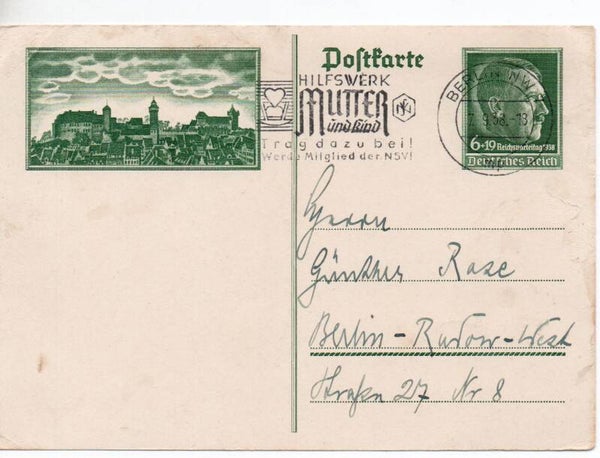 Postkarte
HILFSWERK
MUTTER
und Kind
Trag dazu bei!
Werde Mitglied der NSV!
BERLIN NW 7
38.-13
6+19 Reichsparteitag 1938
Deutsches Reich
Herrn
Günther Rase
Berlin-Rudow-West
Straße 27 Nr 8